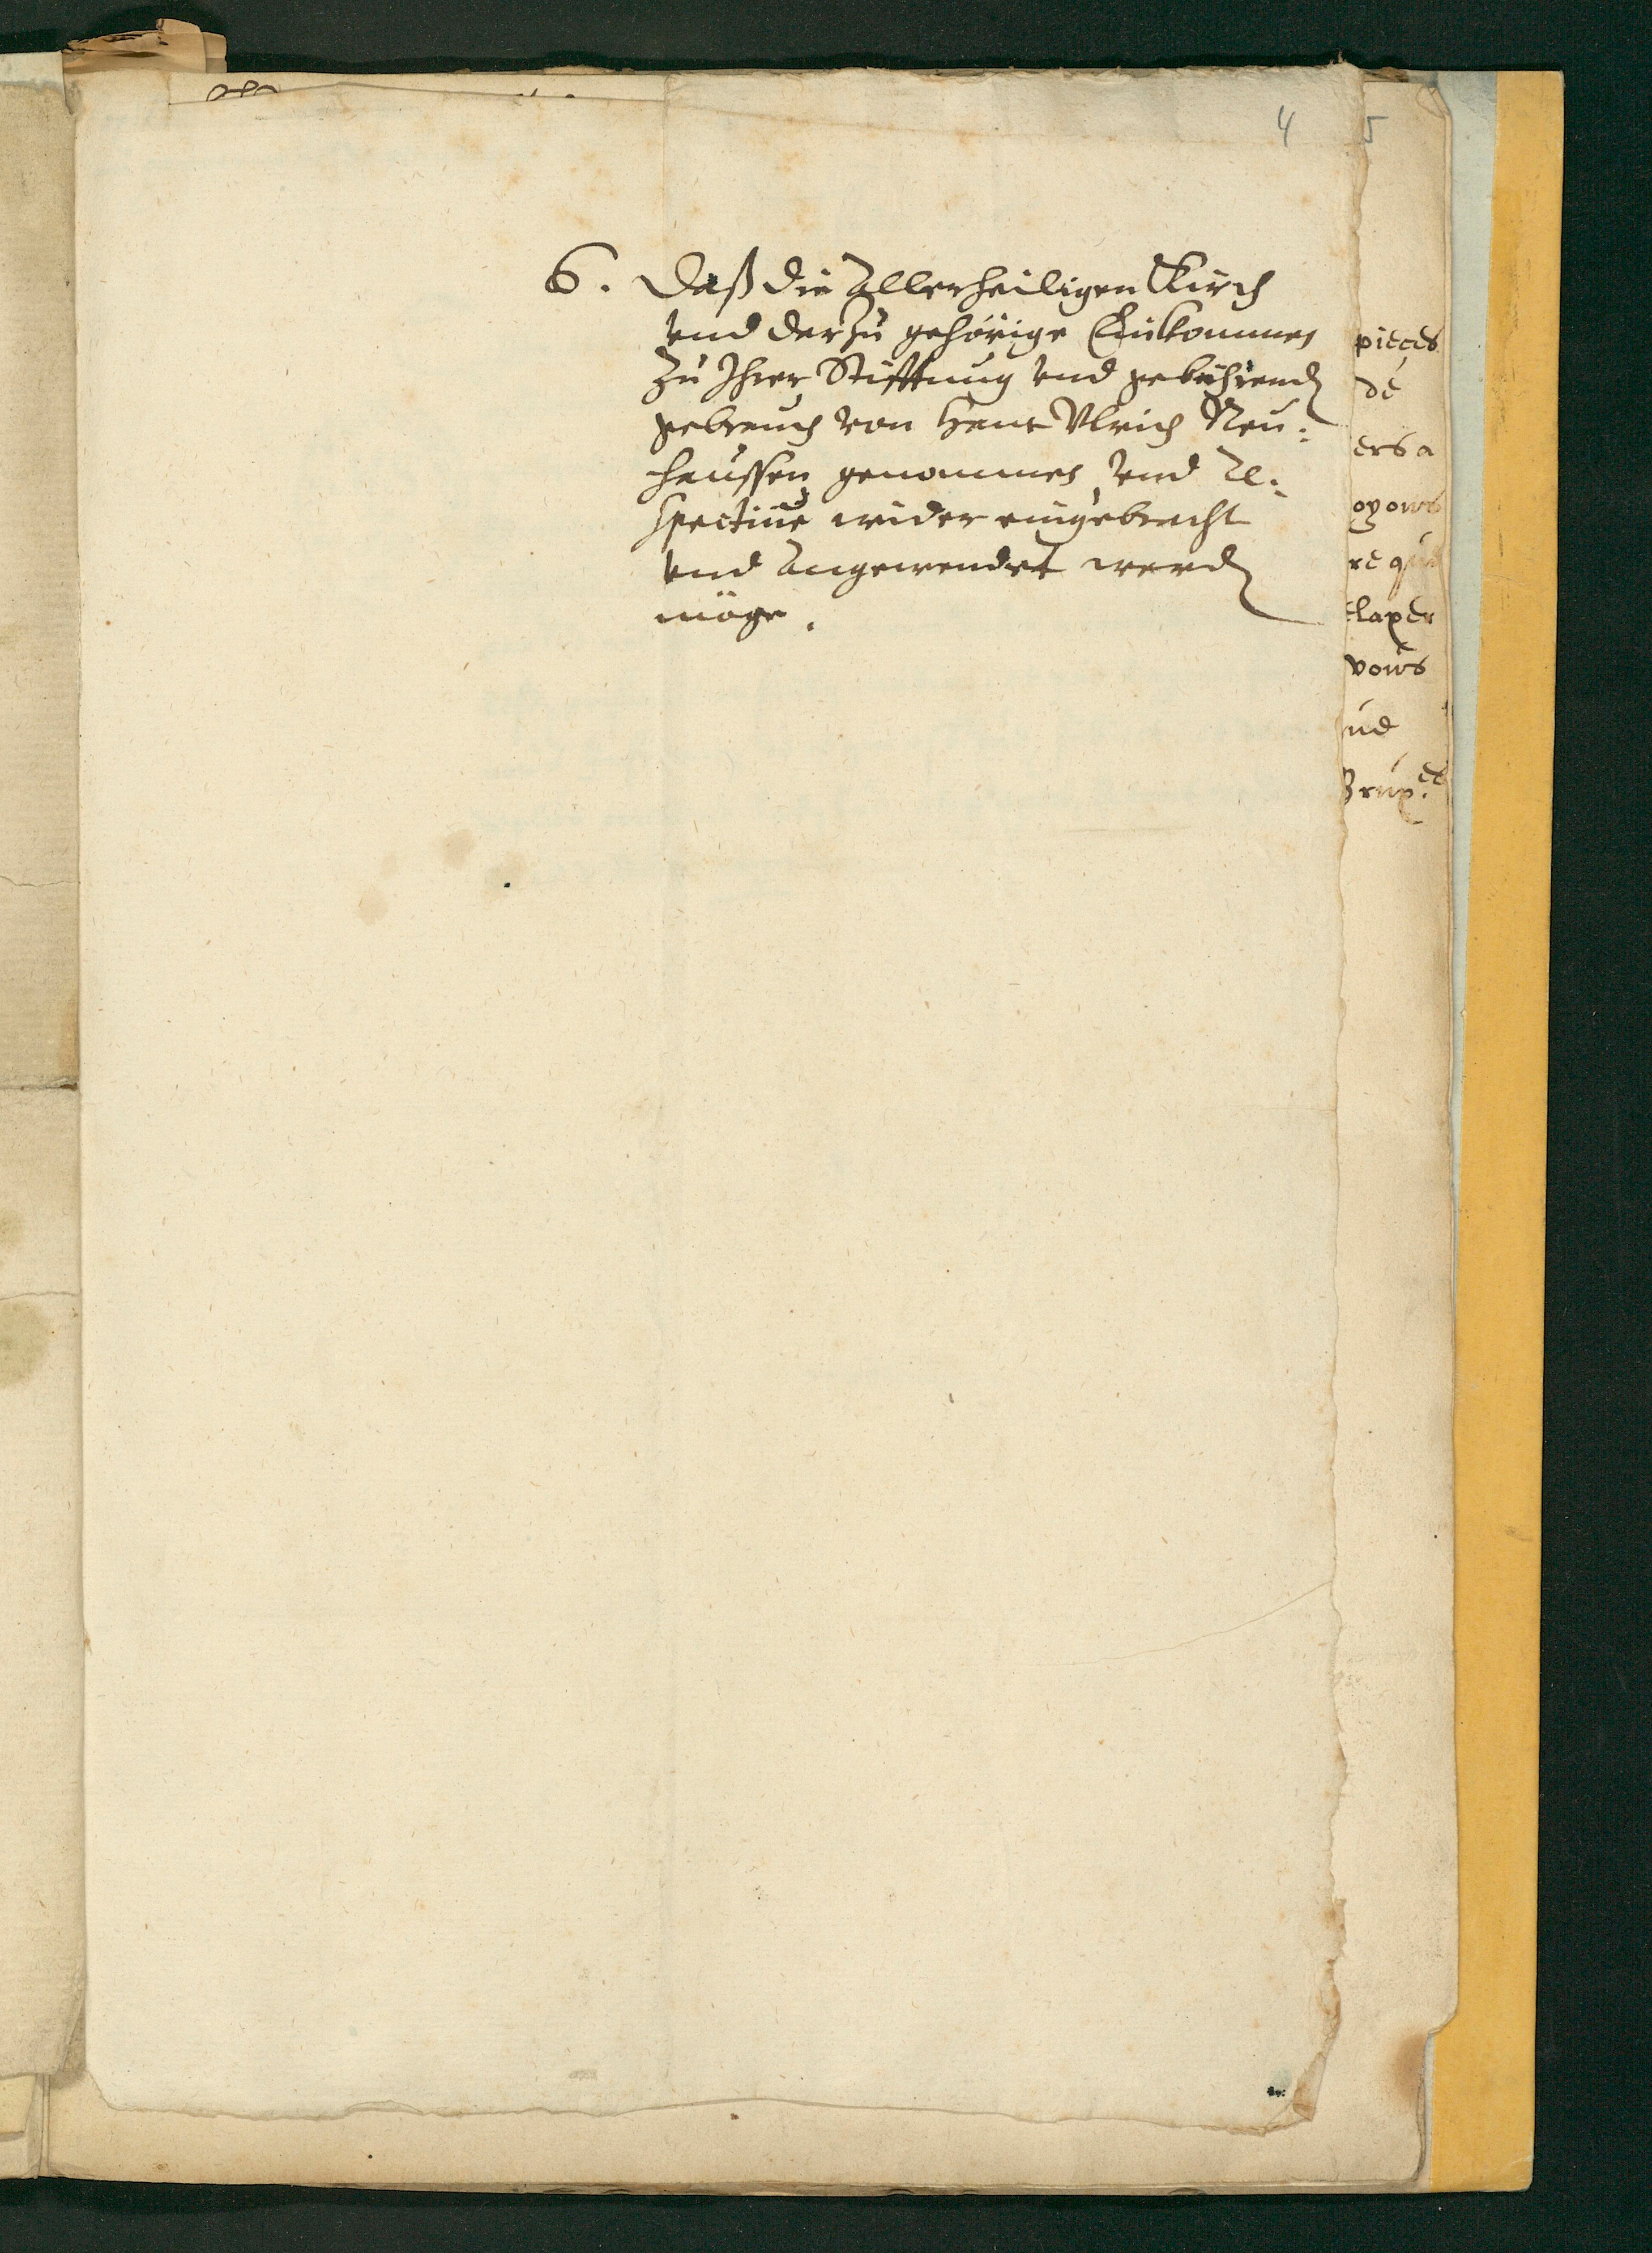 4
5
6. Daß die Allerheiligen Kirch
vnd darzu gehörige Einkommen
Zu Ihrer Stifftung vnd gebührend
gebrauch von Hans Vlrich Neu:
haussen genommen, vnd Re:
spectiue wider eingebracht
vnd Angewendet werd
möge.
pieces
de
ers a
oyons
re que
elaper
vous
ud